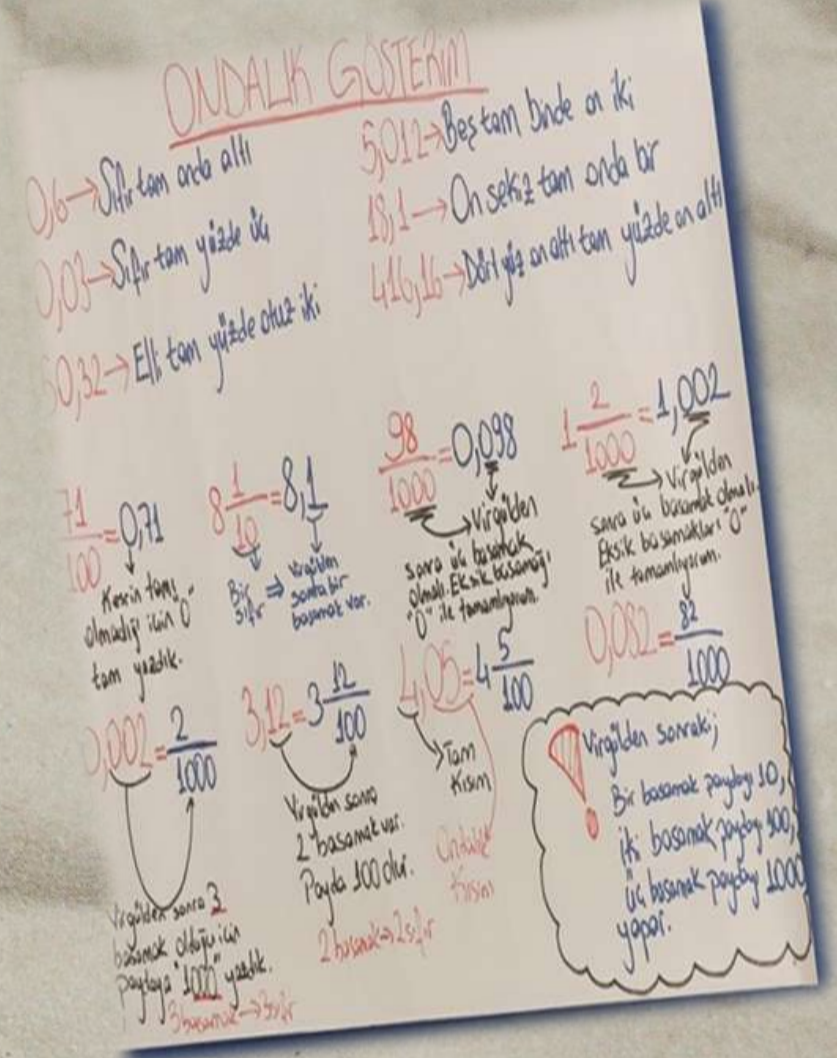 ONDALIK GÖSTERİM
0,6→Sıfır tam onda altı
0,03→Sıfır tam yüzde üç
50,32→Elli tam yüzde otuz iki
5,012→Beş tam binde on iki
18,1→On sekiz tam onda bir
416,16→Dört yüz on altı tam yüzde on altı
71/100=0,71
Kesrin tamı
olmadığı için "0"
tam yazdık.
8 1/10=8,1
Bir ⇒ Virgülden
sıfır sonra bir
basamak var.
98/1000=0,098
→Virgülden
sonra üç basamak
olmalı. Eksik basamağı
"0" ile tamamlıyorum.
1 2/1000=1,002
→Virgülden
sonra üç basamak olmalı.
Eksik basamakları "0"
ile tamamlıyorum.
0,002=2/1000
Virgülden sonra 3
basamak olduğu için
paydaya "1000" yazdık.
3 basamak→3 sıfır
3,12=3 12/100
Virgülden sonra
2 basamak var.
Payda 100 olur.
2 basamak→2 sıfır
4,05=4 5/100
Tam
Kısım
Ondalık
Kısım
0,082=82/1000
! Virgülden sonraki;
Bir basamak paydayı 10,
iki basamak paydayı 100,
üç basamak paydayı 1000
yapar.